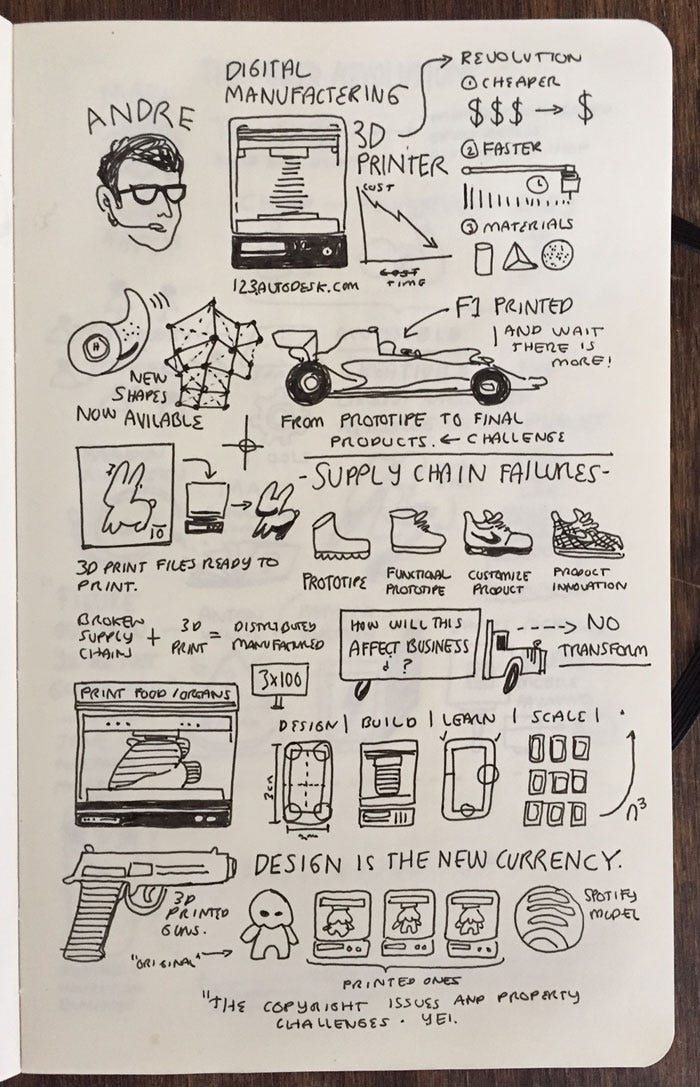 ANDRE
DIGITAL
MANUFACTERING
3D
PRINTER
REVOLUTION
① CHEAPER
$$$ → $
② FASTER
③ MATERIALS
COST
COST
TIME
123.AUTODESK.COM
H
NEW
SHAPES
NOW AVILABLE
F1 PRINTED
AND WAIT
THERE IS
MORE!
FROM PROTOTIPE TO FINAL
PRODUCTS. ← CHALLENGE
10
3D PRINT FILES READY TO
PRINT.
-SUPPLY CHAIN FAILURES-
PROTOTIPE
FUNCTIONAL
PROTOTIPE
CUSTOMIZE
PRODUCT
PRODUCT
INNOVATION
BROKEN
SUPPLY
CHAIN
+
3D
PRINT
=
DISTRIBUTED
MANUFACTURED
HOW WILL THIS
AFFECT BUSINESS
¿ ?
NO
TRANSFORM
PRINT FOOD/ORGANS
3x100
DESIGN | BUILD | LEARN | SCALE |
n³
DESIGN IS THE NEW CURRENCY.
3D
PRINTED
GUNS.
"ORIGINAL"
PRINTED ONES
SPOTIFY
MODEL
"THE COPYRIGHT ISSUES AND PROPERTY
CHALLENGES. YEI.